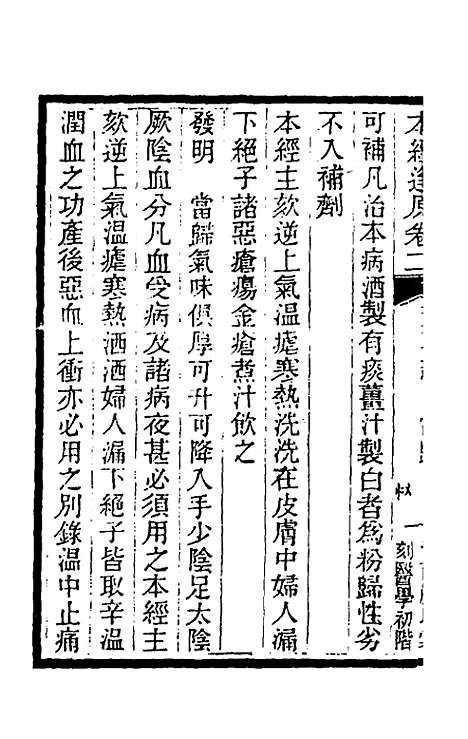 本經逢原卷二
刻醫學初階
可補凡治本病酒製有痰薑汁製白者爲粉歸性劣
不入補劑
本經主欬逆上氣溫瘧寒熱洗洗在皮膚中婦人漏
下絕子諸惡瘡瘍金瘡煮汁飲之
發明　當歸氣味俱厚可升可降入手少陰足太陰
厥陰血分凡血受病及諸病夜甚必須用之本經主
欬逆上氣溫瘧寒熱洒洒婦人漏下絕子皆取辛溫
潤血之功產後惡血上衝亦必用之別錄溫中止痛